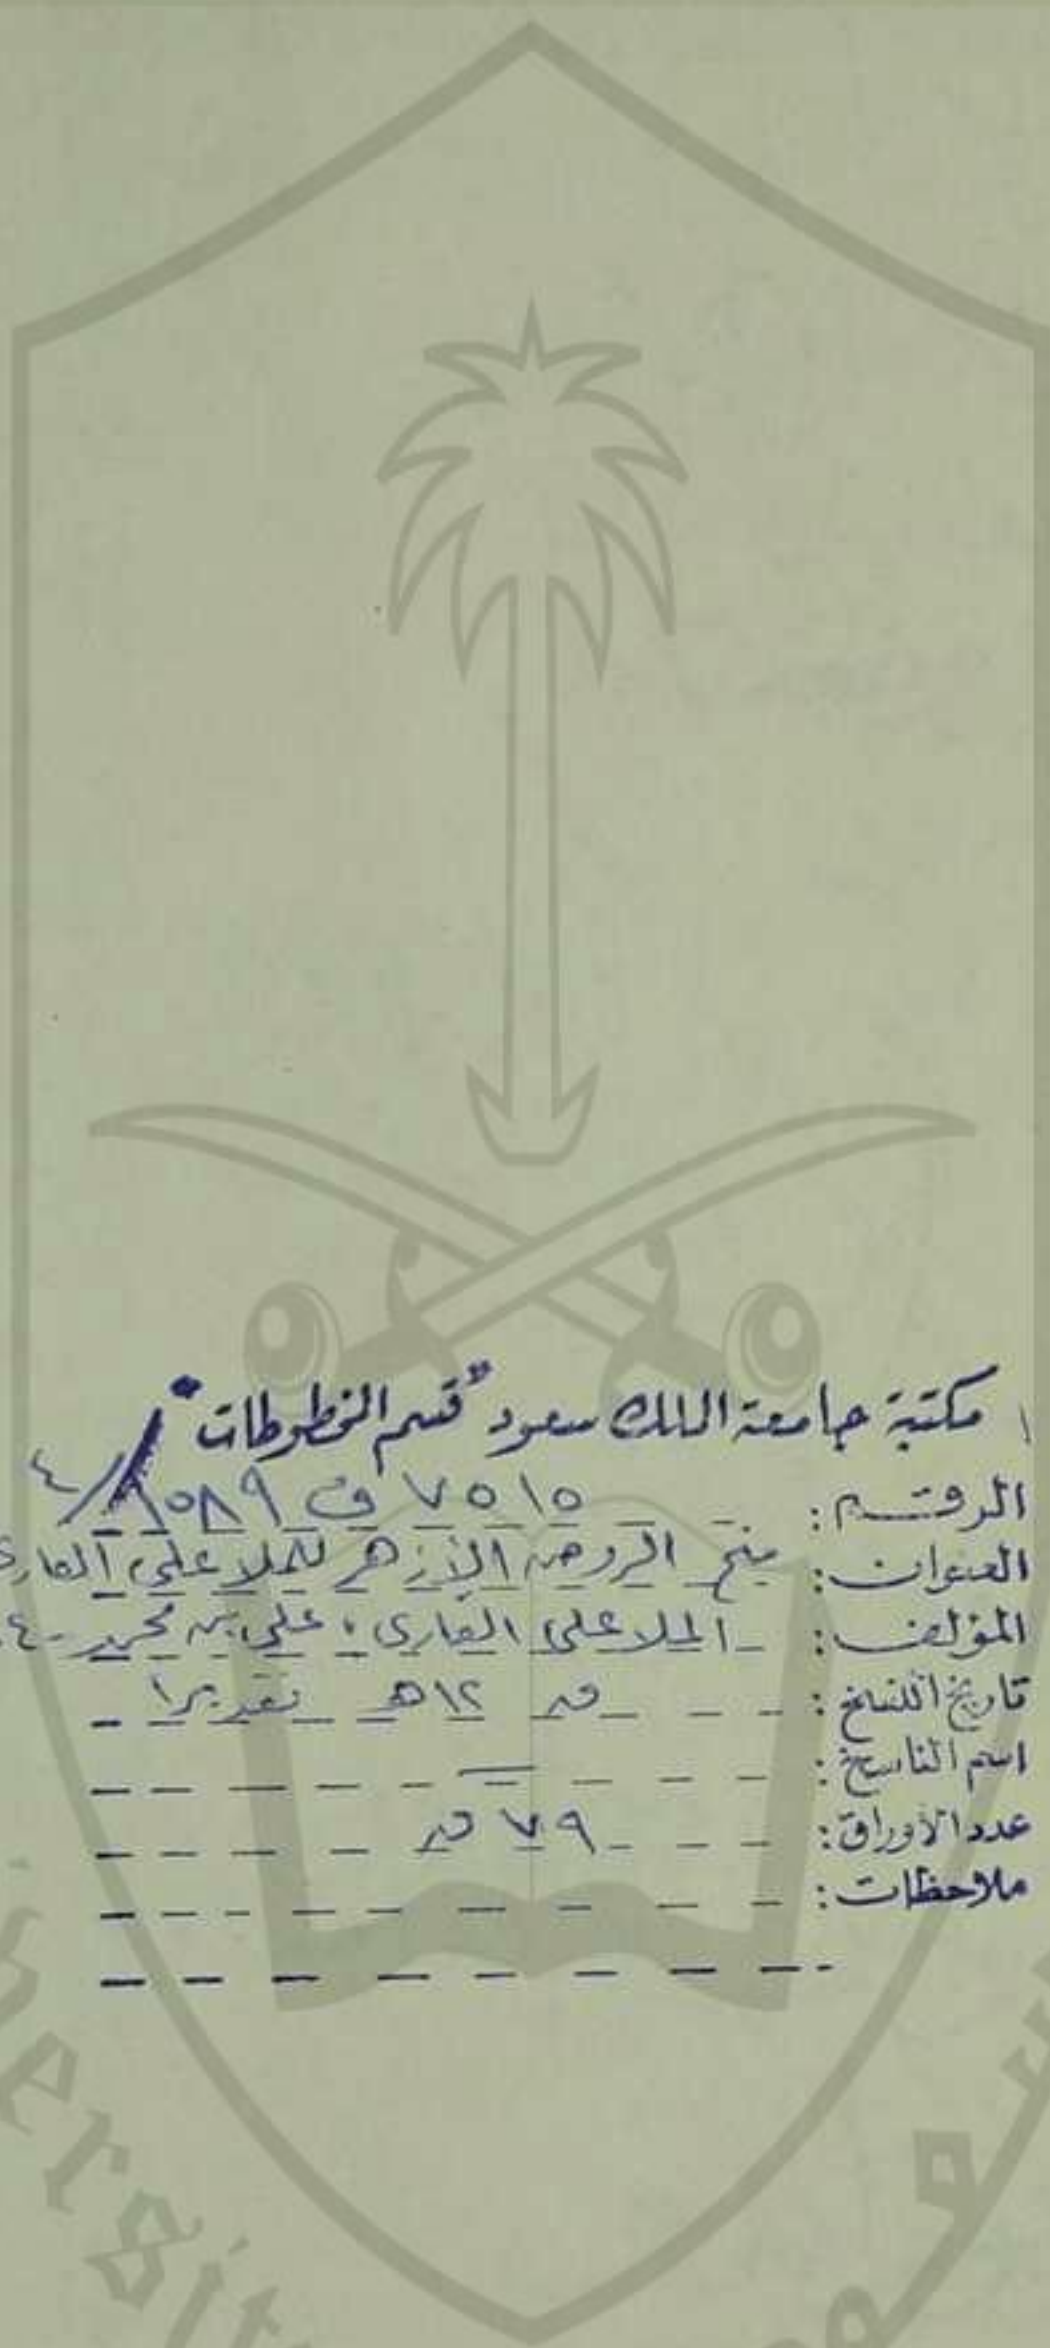 مكتبة جامعة الملك سعود "قسم المخطوطات"
الرقم: ٧٥١٥ ف ١٥٨٩ / ٤
العنوان: منح الروض الأزهر للملا علي القاري
المؤلف: الملا علي القاري، علي بن محمد
تاريخ النسخ: ق ١٢ هـ تقديرا
اسم الناسخ: —
عدد الأوراق: ٧٩ ق
ملاحظات: